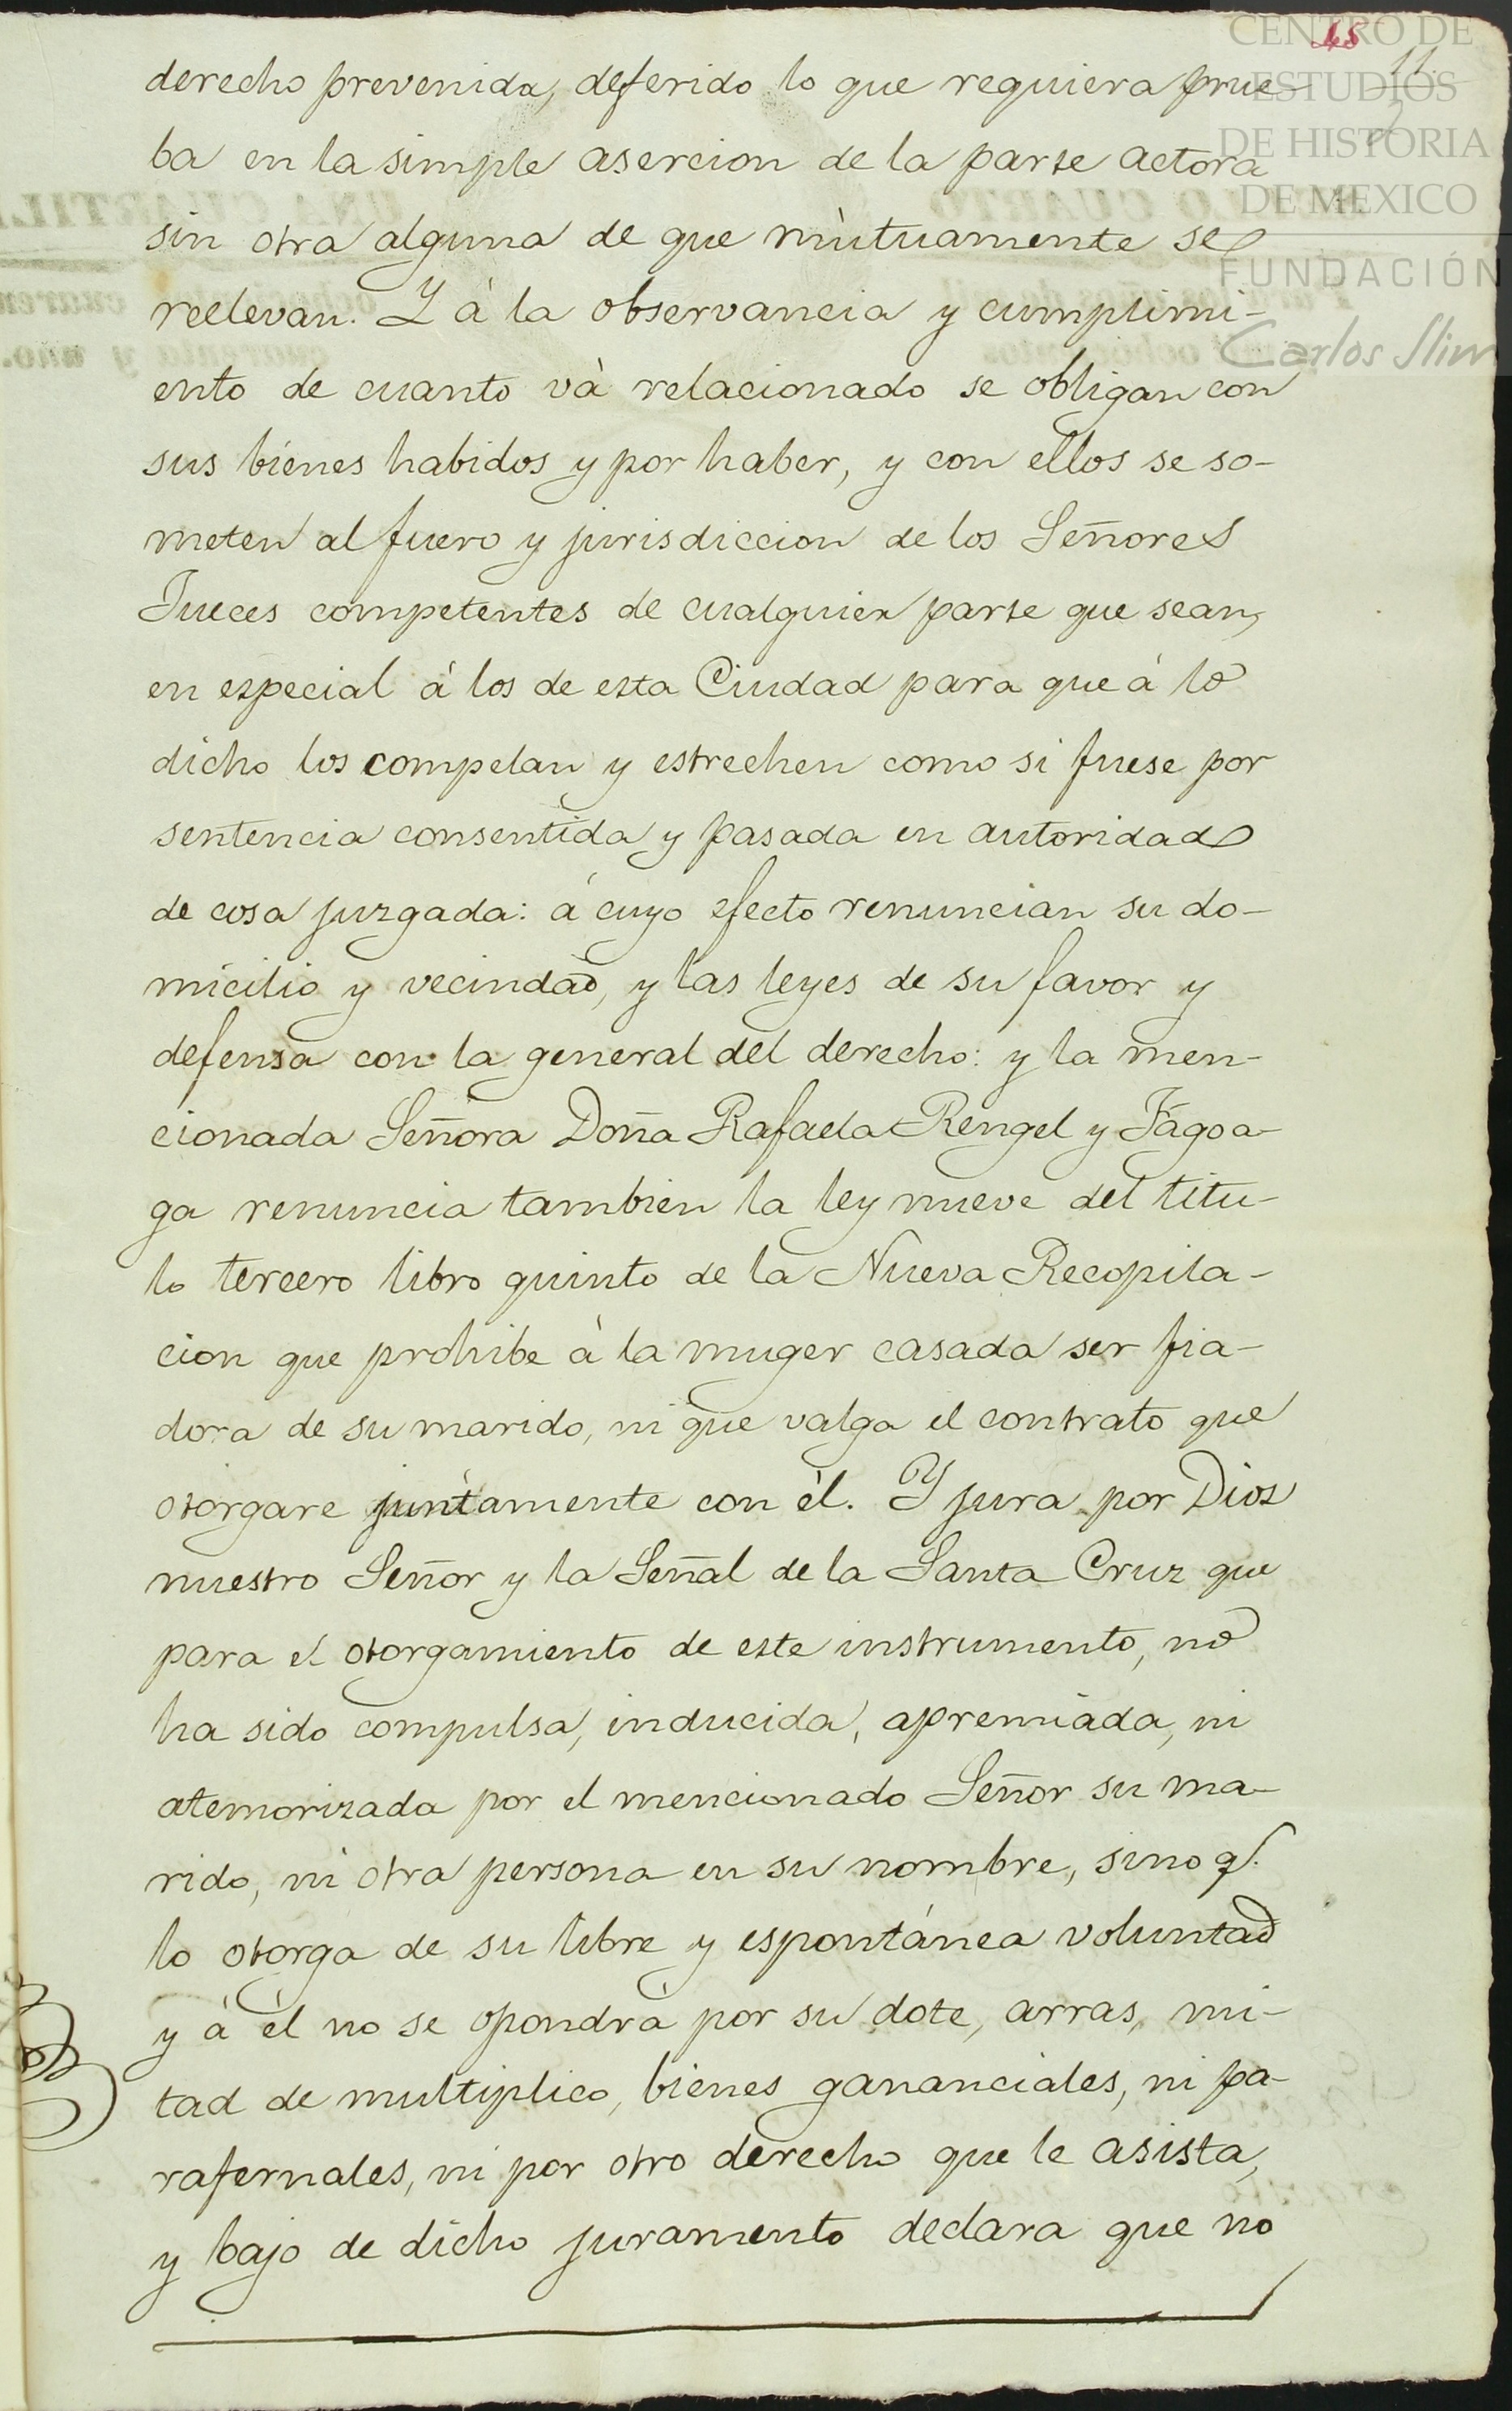 CENTRO DE
ESTUDIOS
DE HISTORIA
DE MEXICO
FUNDACIÓN
Carlos Slim
48
11
derecho prevenida, deferido lo que requiera prue-
ba en la simple asercion de la parte actora
sin otra alguna de que mùtuamente se
reelevan. Y à la observancia y cumplimi-
ento de cuanto và relacionado se obligan con
sus bienes habidos y por haber, y con ellos se so-
meten al fuero y jurisdiccion de los Señores
Jueces competentes de cualquier parte que sean,
en especial á los de esta Ciudad para que á lo
dicho los compelan y estrechen como si fuese por
sentencia consentida y pasada en autoridad
de cosa juzgada: á cuyo efecto renuncian su do-
micilio y vecindad, y las leyes de su favor y
defensa con la general del derecho: y la men-
cionada Señora Doña Rafaela Rengel y Fágoa-
ga renuncia tambien la ley nueve del titu-
lo tercero libro quinto de la Nueva Recopila-
cion que prohibe à la muger casada ser fia-
dora de su marido, ni que valga el contrato que
otorgare juntamente con èl. Y jura por Dios
nuestro Señor y la Señal de la Santa Cruz que
para el otorgamiento de este instrumento, no
ha sido compulsa, inducida, apremiada, ni
atemorizada por el mencionado Señor su ma-
rido, ni otra persona en su nombre, sino q.
lo otorga de su libre y espontánea voluntad
y á él no se opondrá por su dote, arras, mi-
tad de multiplico, bienes gananciales, ni pa-
rafernales, ni por otro derecho que le asista,
y bajo de dicho juramento declara que no